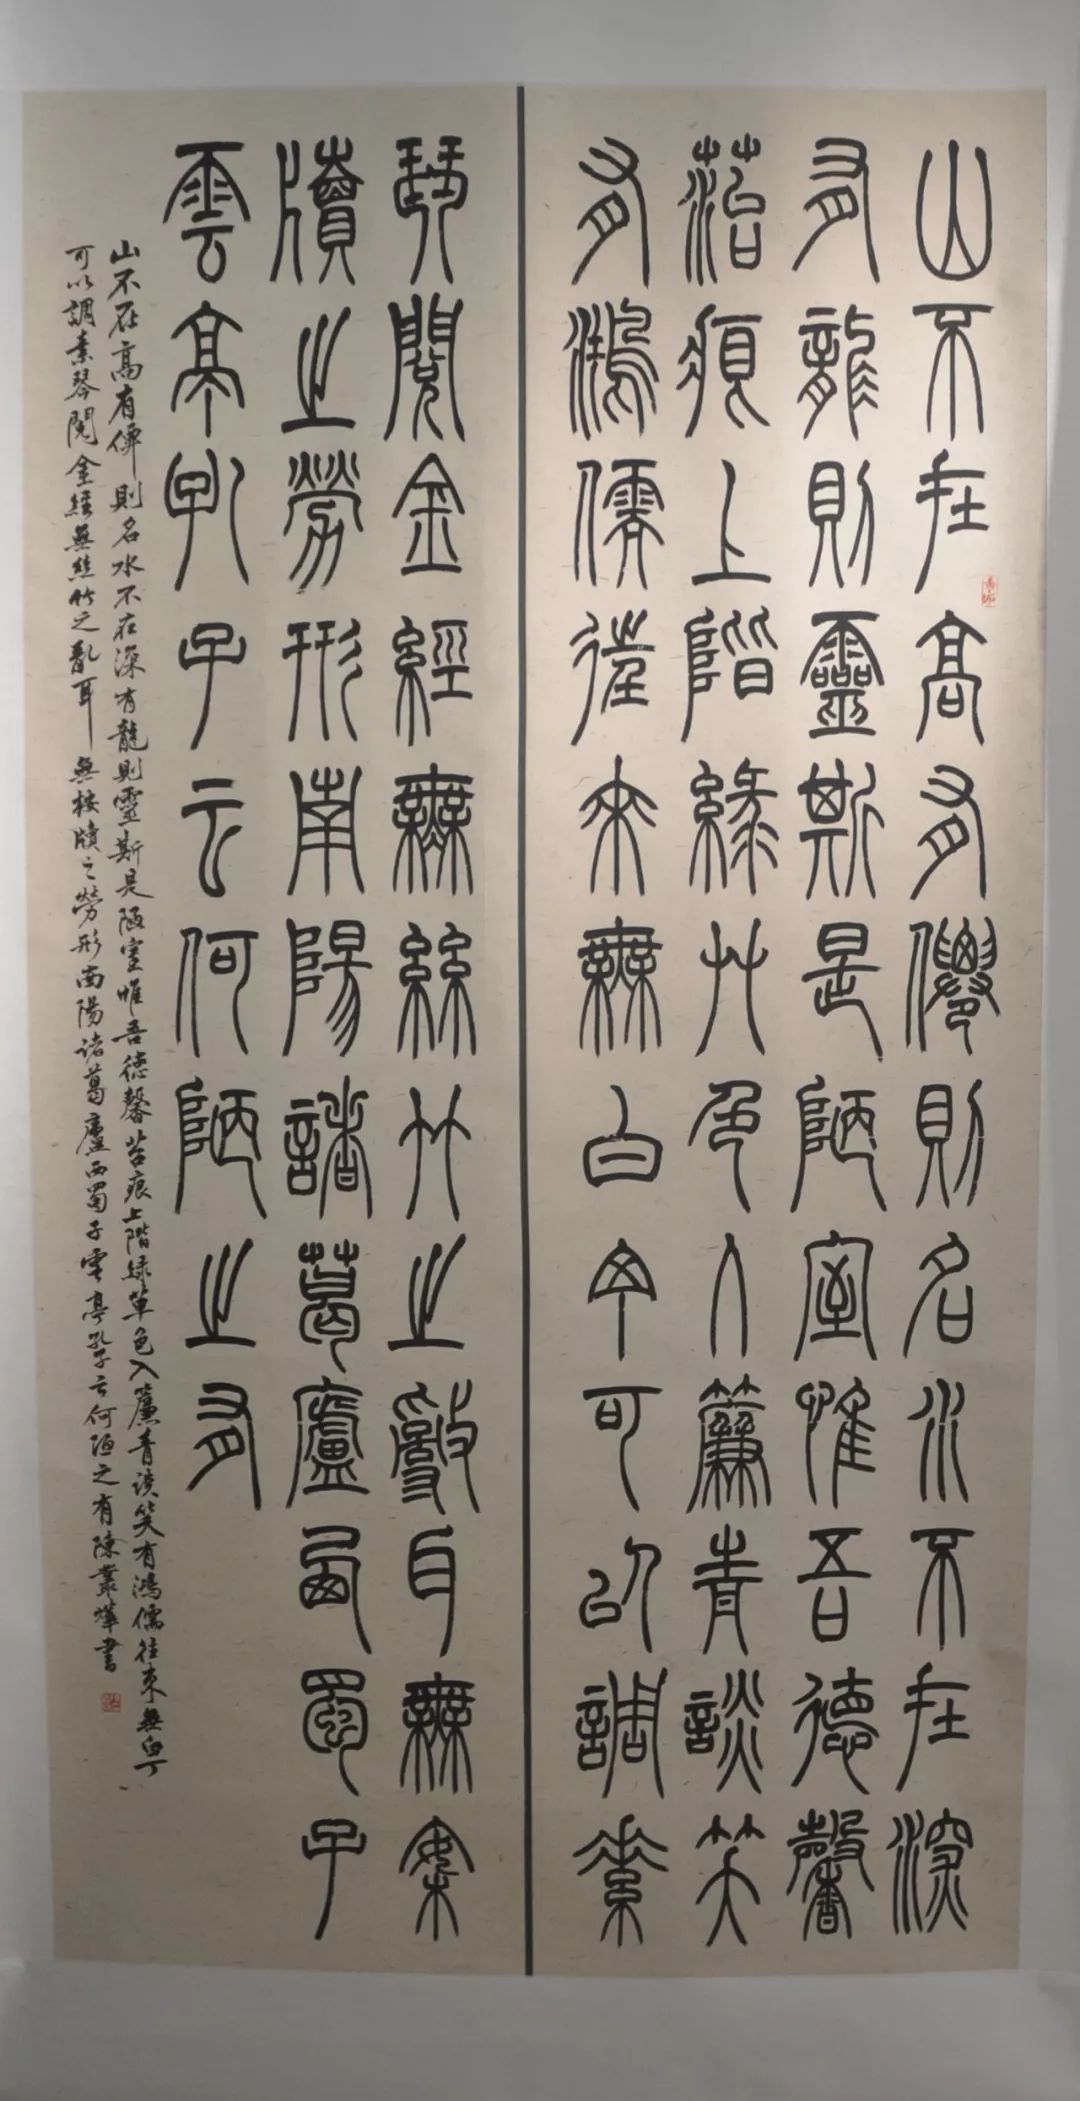 山不在高有僊則名水不在深
有龍則靈斯是陋室惟吾德馨
菭痕上階綠艸色入簾青談笑
有鴻儒往來無白丁可以調素
琴閱金經無絲竹之亂耳無案
牘之勞形南陽諸葛廬西蜀子
雲亭孔子云何陋之有
山不在高有僊則名水不在深有龍則靈斯是陋室惟吾德馨苔痕上階綠草色入簾青談笑有鴻儒往來無白丁
可以調素琴閱金經無絲竹之亂耳無按牘之勞形南陽諸葛廬西蜀子雲亭孔子云何陋之有陳叢燁書